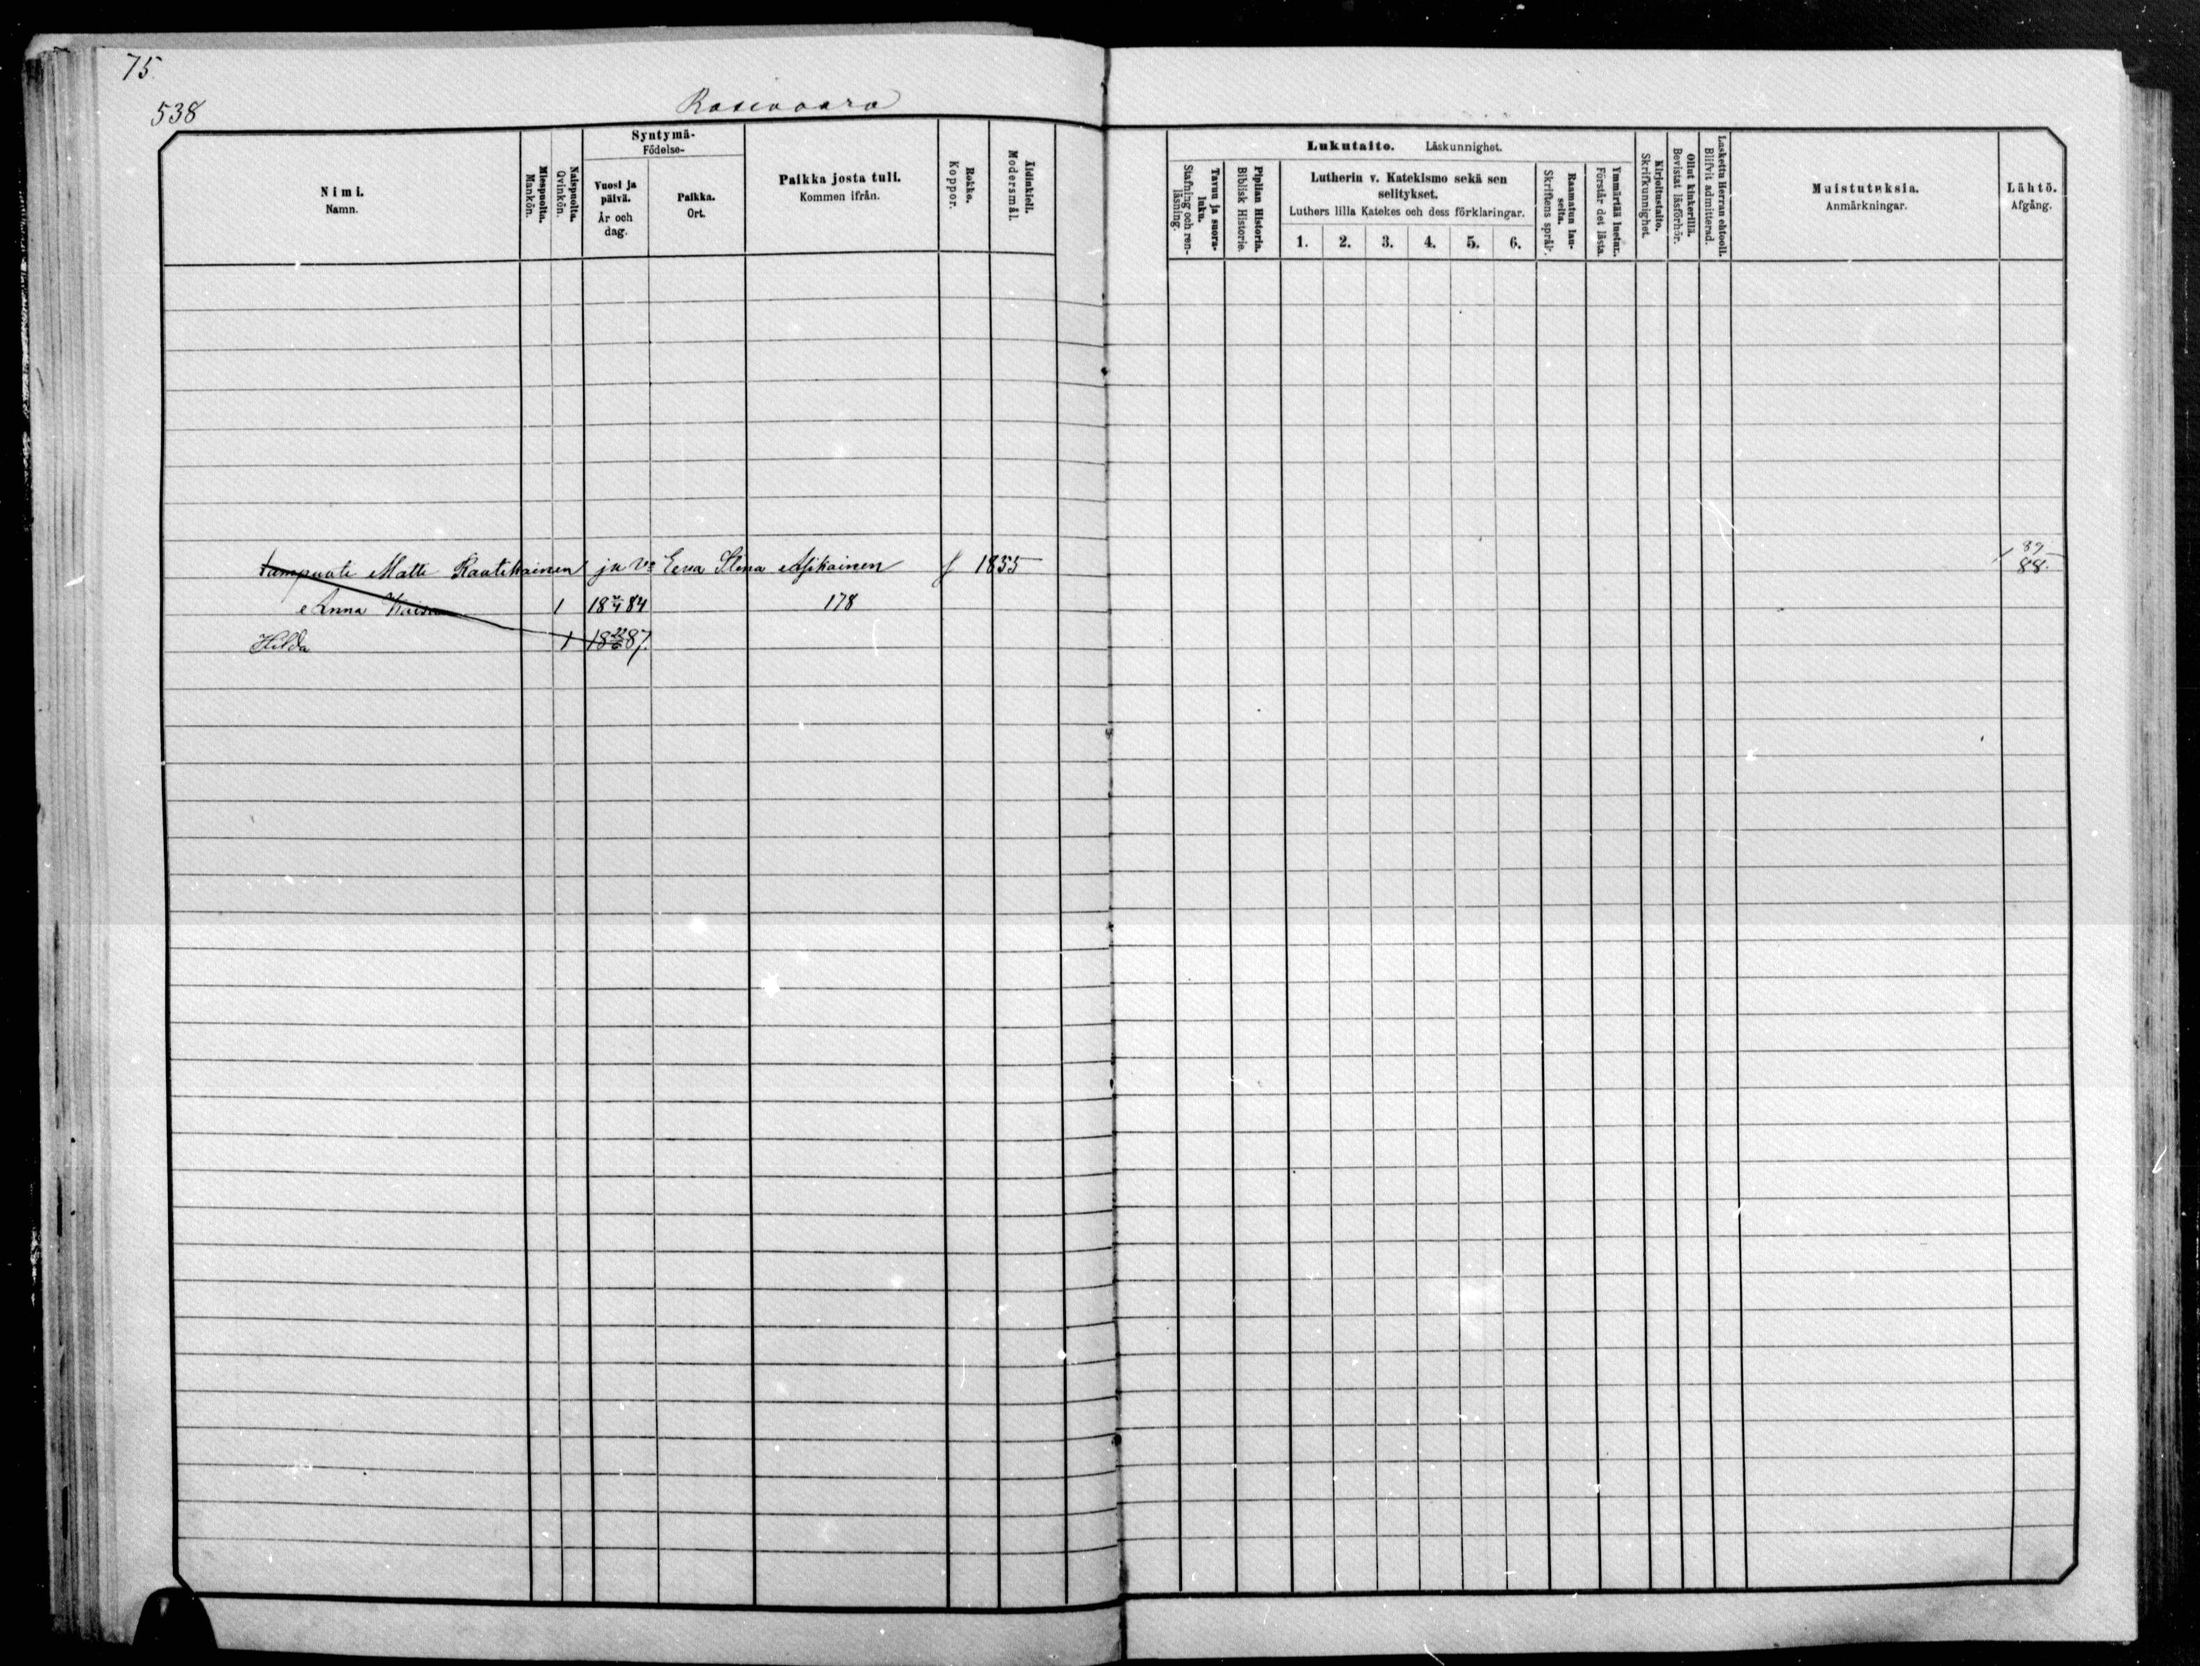 75
538
Rasivaara
Nimi.
Namn.
Miespuolta.
Mankön.
Naispuolta.
Qvinkön.
Syntymä-
Födelse-
Vuosi ja
päivä.
År och
dag.
Paikka.
Ort.
Paikka josta tuli.
Kommen ifrån.
Rokko.
Koppor.
Äidinkieli.
Modersmål.
Tavu ja suora-
luku.
Stafning och ren-
läsning.
Piplian Historia.
Biblisk Historie.
Lukutaito. Läskunnighet.
Lutherin v. Katekismo sekä sen
selitykset.
Luthers lilla Katekes och dess förklaringar.
1. 2. 3. 4. 5. 6.
Raamatun lau-
seita.
Skriftens språk.
Ymmärtää luetun.
Förstår det lästa.
Kirjoitustaito.
Skrifkunnighet.
Ollut kinkerillä.
Bevistat läsförhör.
Laskettu Herran ehtoolI.
Blifvit admitterad.
Muistutuksia.
Anmärkningar.
Lähtö.
Afgång.
Matti Kaatikainen ja Eeva Stina 1855 87 88.
Anna 1 18 84 178
Hilda 1 18 22/6 87.